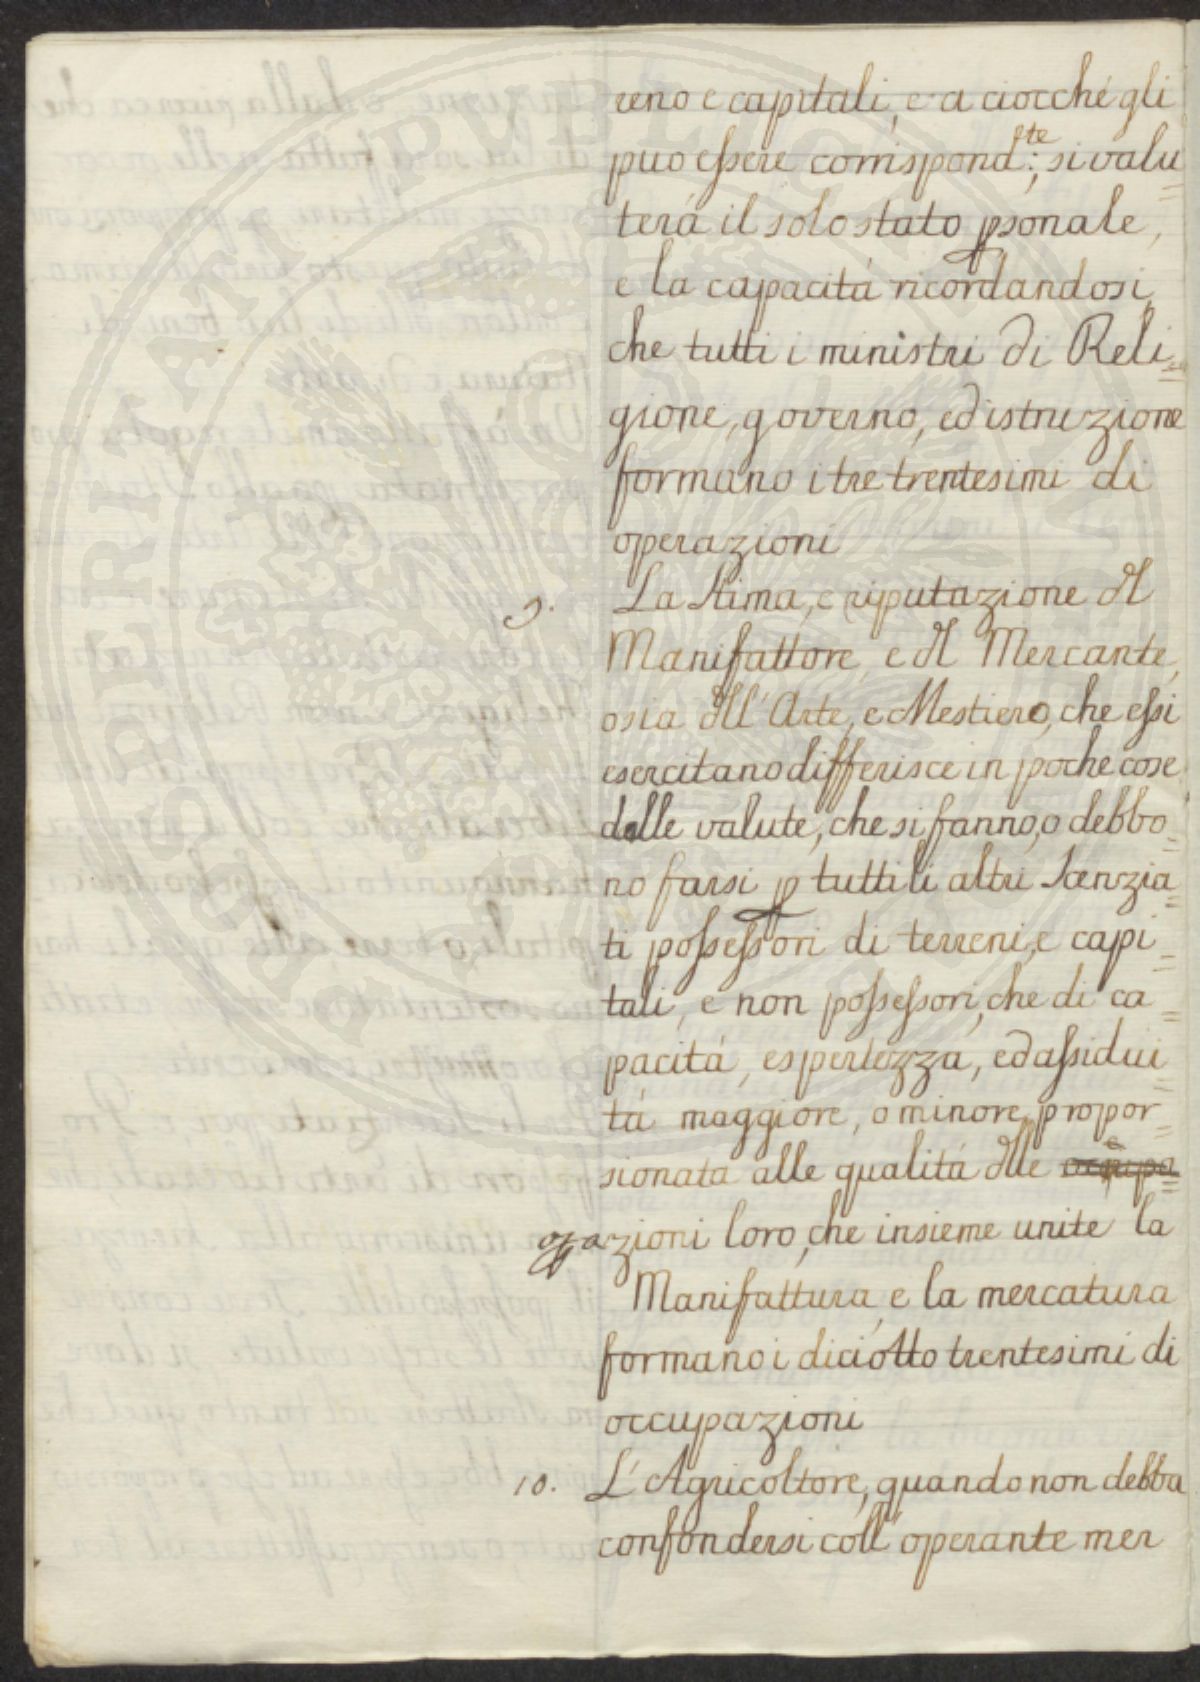 reno e capitali, e a ciocché gli
può essere corrispond.te; si valu=
terá il solo stato psonale,
e la capacitá ricordandosi,
che tutti i ministri di Reli=
gione, governo, ed istruzione
formano i tre trentesimi di
operazioni
9. La Stima, e riputazione dl
Manifattore, e dl Mercante,
osia dll' Arte, e Mestiero, che essi
esercitano differisce in poche cose
dalle valute, che si fanno, o debbo=
no farsi p tutti li altri Scenzia=
ti possessori di terreni, e capi=
tali, e non possessori, che di ca=
pacitá, espertezza, ed assidui=
tá maggiore, o minore propor=
sionata alle qualitá dlle
opazioni loro, che insieme unite la
Manifattura, e la mercatura
formano i diciotto trentesimi di
occupazioni
10. L' Agricoltore, quando non debba
confondersi coll' operante mer
PUBLICAE